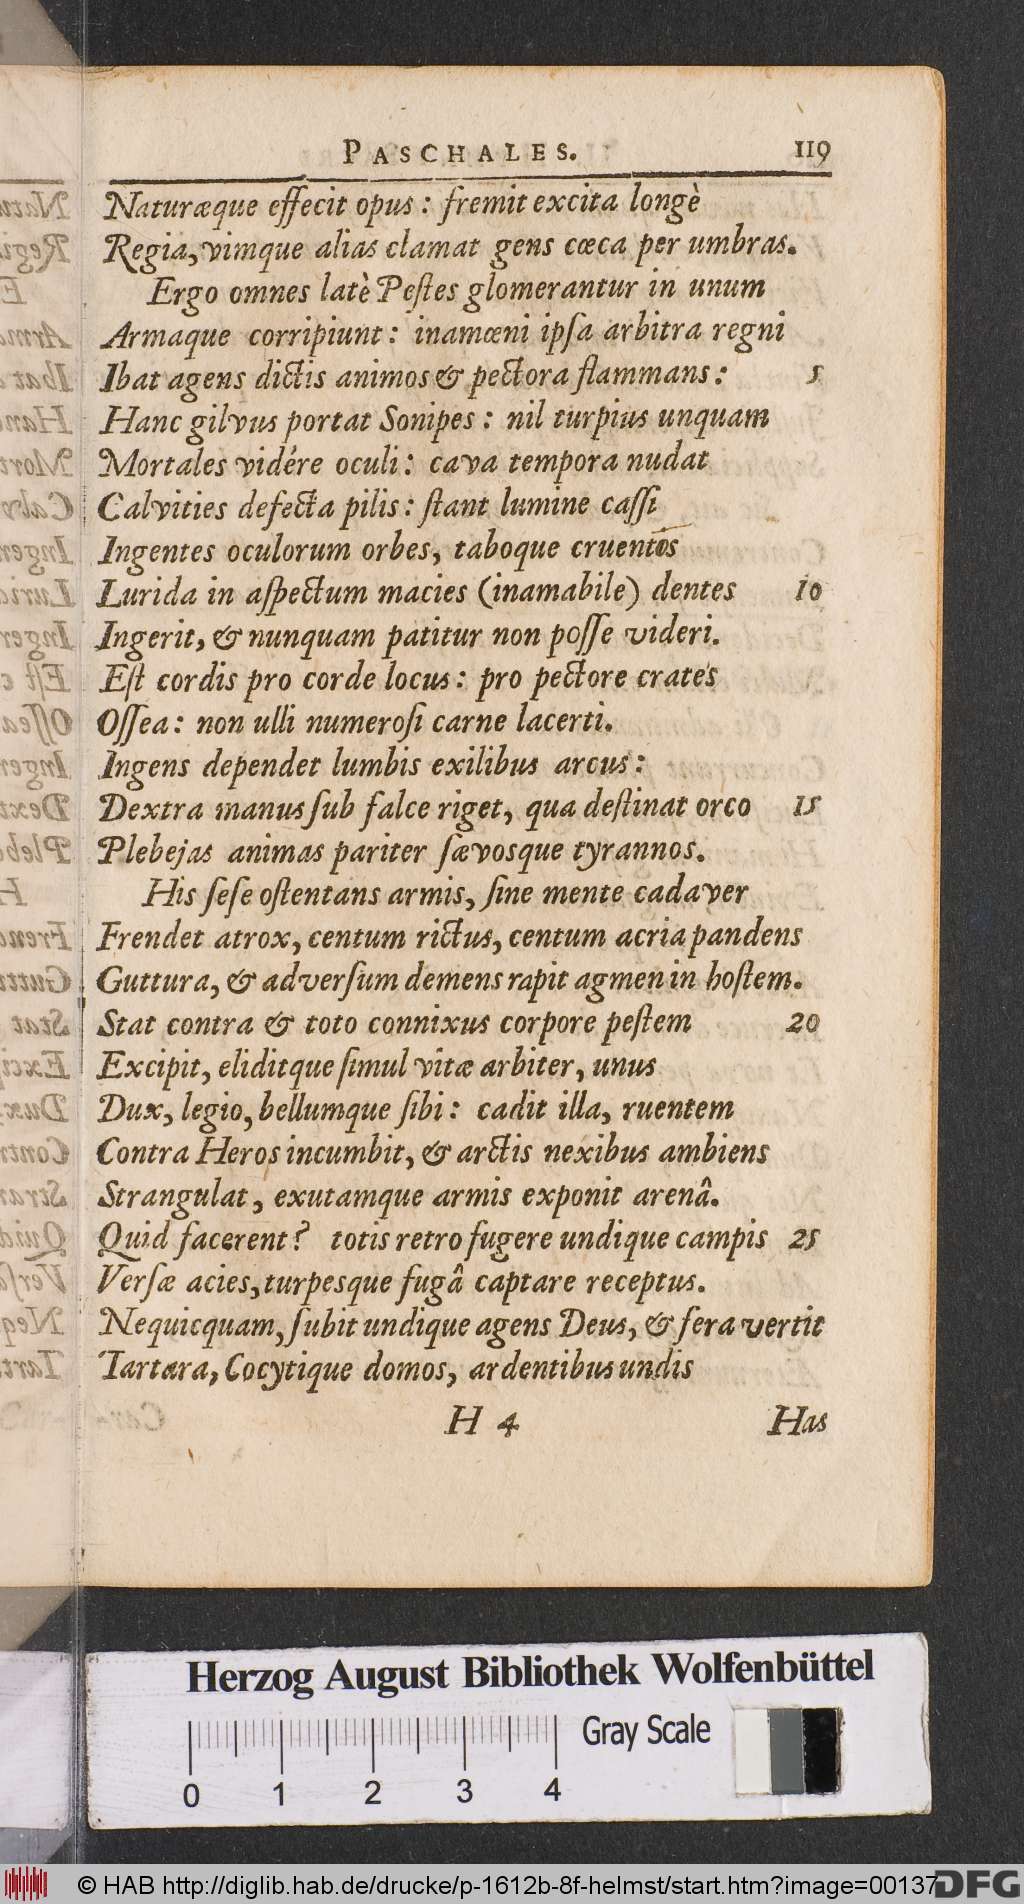 PASCHALES. 119
Naturæque effecit opus : fremit excita longè
Regia, vimque alias clamat gens cœca per umbras.
Ergo omnes latè Peſtes glomerantur in unum
Armaque corripiunt : inamœni ipſa arbitra regni
Ibat agens dictis animos & pectora flammans : 5
Hanc gilvus portat Sonipes : nil turpius unquam
Mortales vidére oculi : cava tempora nudat
Calvities defecta pilis : ſtant lumine caſſi
Ingentes oculorum orbes, taboque cruentos
Lurida in aſpectum macies (inamabile) dentes 10
Ingerit, & nunquam patitur non poſſe videri.
Eſt cordis pro corde locus : pro pectore crates
Oſſea : non ulli numeroſi carne lacerti.
Ingens dependet lumbis exilibus arcus :
Dextra manus ſub falce riget, qua deſtinat orco 15
Plebejas animas pariter ſævosque tyrannos.
His ſeſe oſtentans armis, ſine mente cadaver
Frendet atrox, centum rictus, centum acria pandens
Guttura, & adverſum demens rapit agmen in hoſtem.
Stat contra & toto connixus corpore peſtem 20
Excipit, eliditque ſimul vitæ arbiter, unus
Dux, legio, bellumque ſibi : cadit illa, ruentem
Contra Heros incumbit, & arctis nexibus ambiens
Strangulat, exutamque armis exponit arenâ.
Quid facerent? totis retro fugere undique campis 25
Verſæ acies, turpesque fugâ captare receptus.
Nequicquam, ſubit undique agens Deus, & fera vertit
Tartara, Cocytique domos, ardentibus undis
H 4 Has
Herzog August Bibliothek Wolfenbüttel
Gray Scale
0 1 2 3 4
© HAB http://diglib.hab.de/drucke/p-1612b-8f-helmst/start.htm?image=00137
DFG